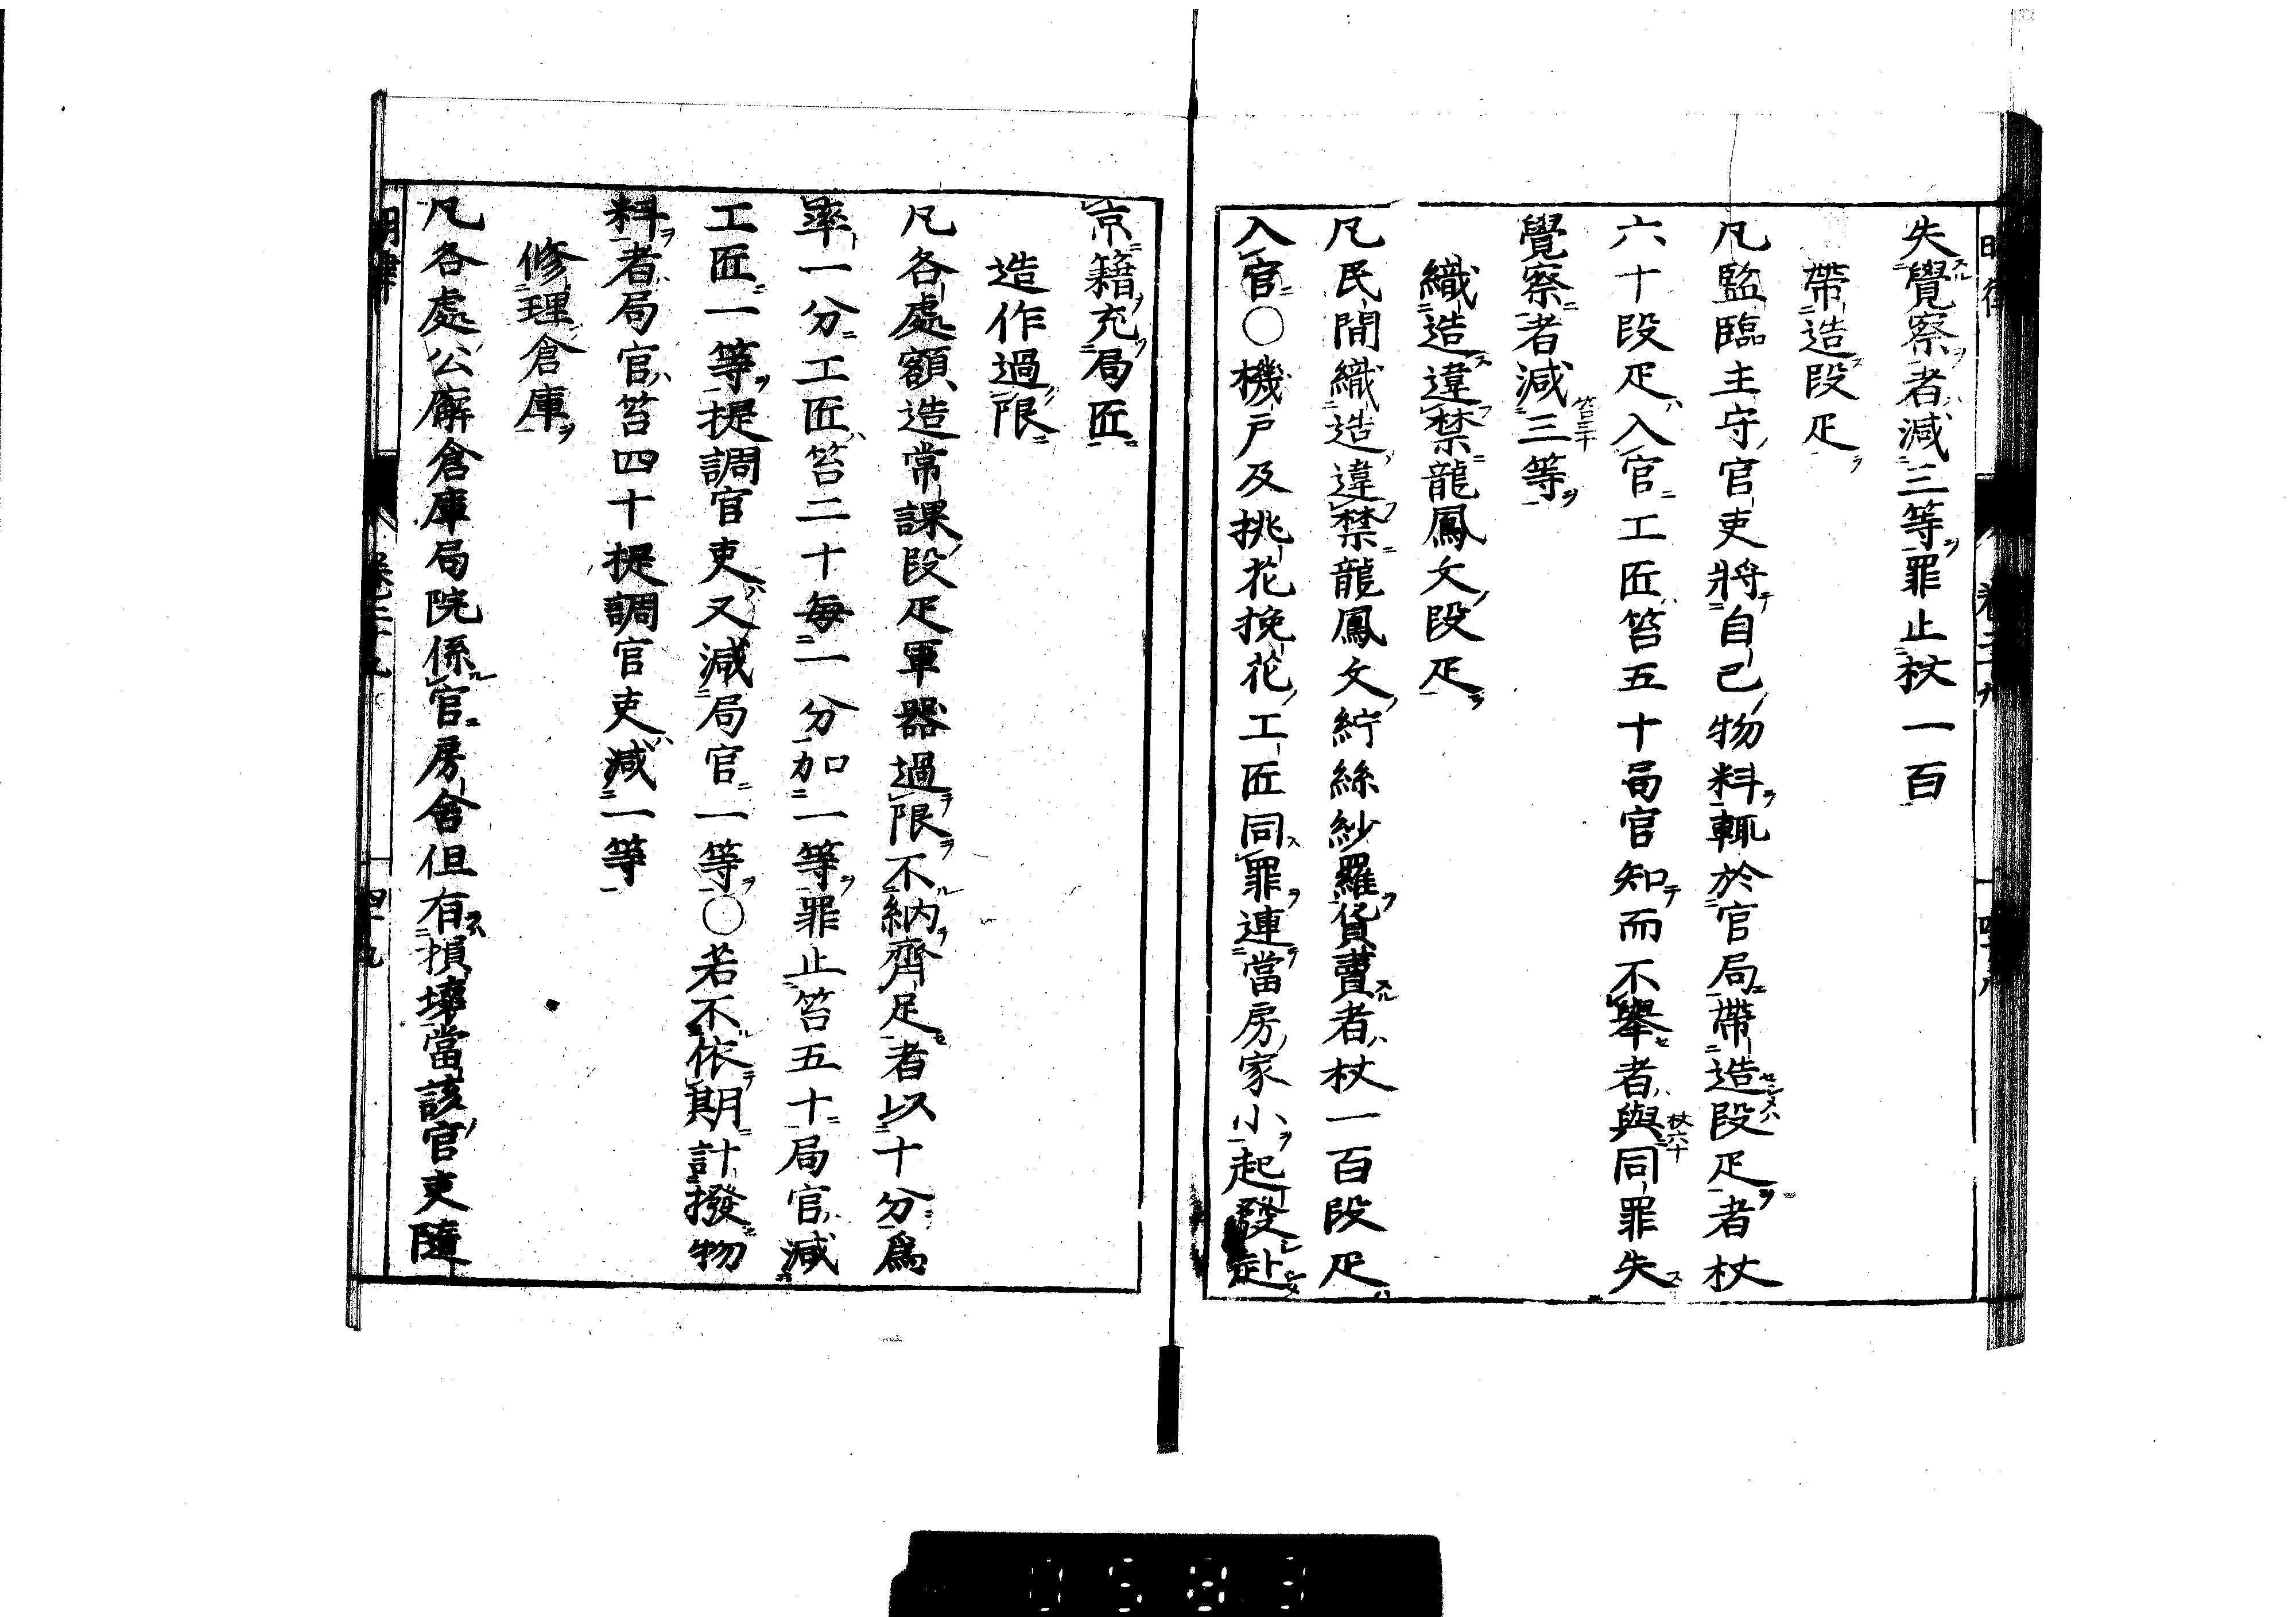 失覺察者減三等罪止杖一百
帶造段疋
凡監臨主守官吏將自己物料輒於官局帶造段疋者杖
六十段疋入官工匠笞五十局官知而不舉者與同罪失
杖六十
覺察者減三等
笞三十
織造違禁龍鳳文段疋
凡民間織造違禁龍鳳文紵絲紗羅貨賣者杖一百段疋
入官〇機戶及挑花挽花工匠同罪連當房家小起發赴
京籍充局匠
造作過限
凡各處額造常課段疋軍器過限不納齊足者以十分爲
率一分工匠笞二十每一分加一等罪止笞五十局官減
工匠一等提調官吏又減局官一等〇若不依期計撥物
料者局官笞四十提調官吏減一等
修理倉庫
凡各處公廨倉庫局院係官房舍但有損壞當該官吏隨
明律 卷二十九 四十九